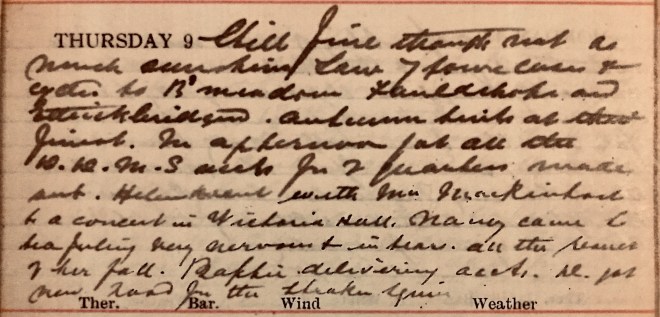 THURSDAY 9 Still fine though not as
much sunshine. Saw 7 town cases &
cycled to B'meadow Fauldshope and
Ettrickbridgend. Autumn tints at their
finest. In afternoon got all the
accts for 2 quarters made
out. Helen went with Mrs
to a concert in Victoria Hall. Nancy came to
tea feeling very nervous & in tears. all the result
of her fall. delivering accts. got
new for the again
Ther. Bar. Wind Weather